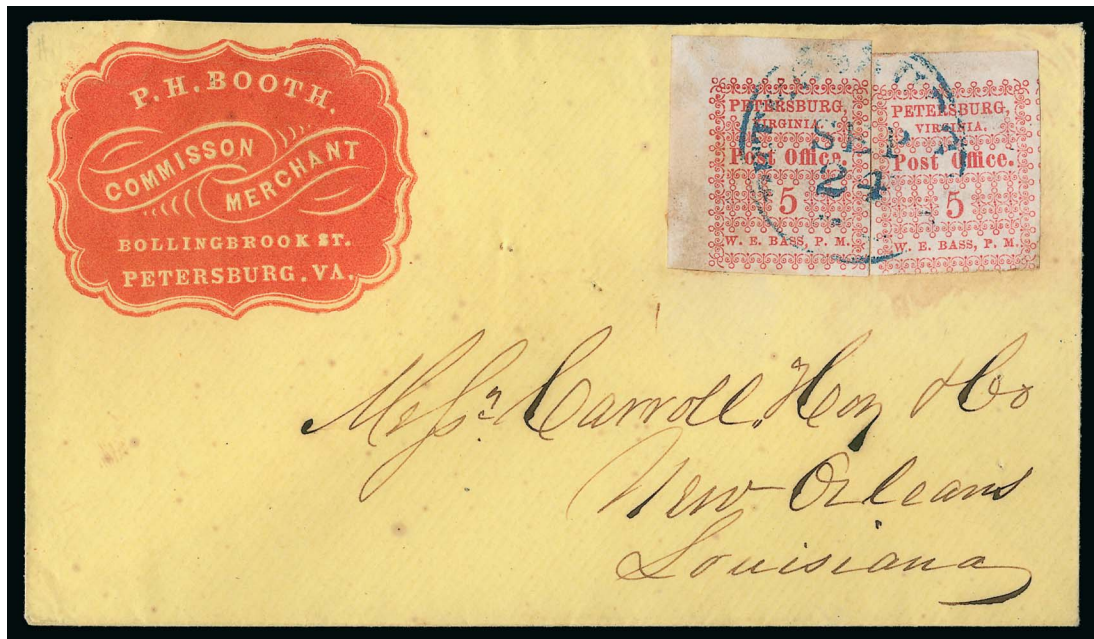 P. H. BOOTH.
COMMISSON
MERCHANT
BOLLINGBROOK ST.
PETERSBURG. VA.
PETERSBURG,
VIRGINIA.
Post Office.
5
W. E. BASS, P. M.
PETERSBURG,
VIRGINIA.
Post Office.
5
W. E. BASS, P. M.
SEP
24
Messrs Carroll, Hoy & Co
New Orleans
Louisiana